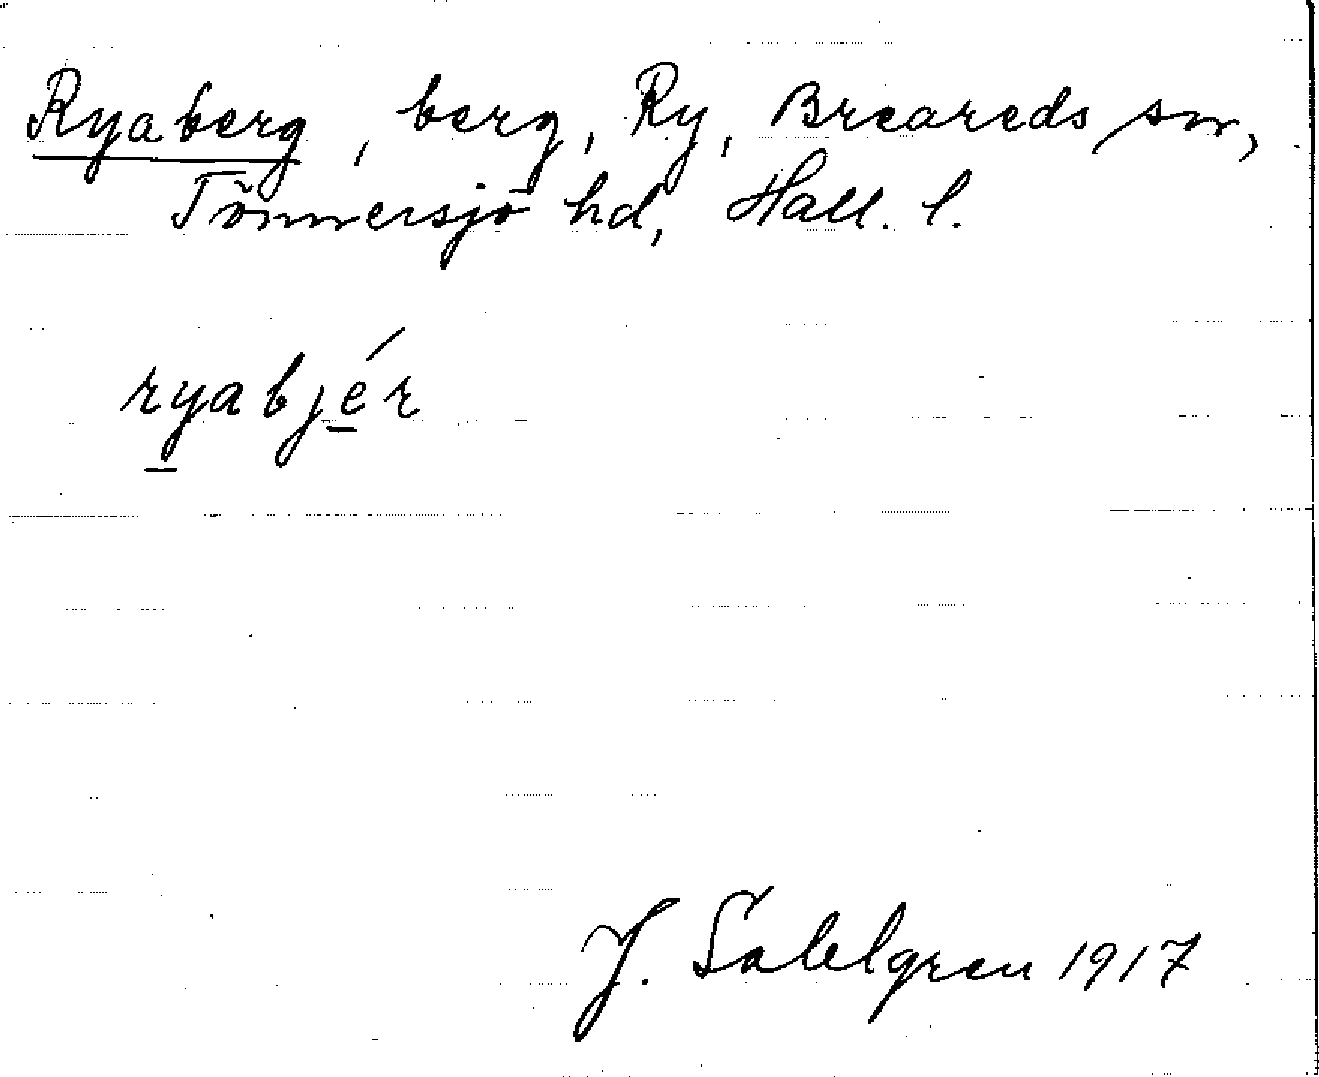 Ryaberg, berg, Ry, Breareds sn,
Tönnersjö hd, Hall. l.
ryabjér
J. Sahlgren 1917